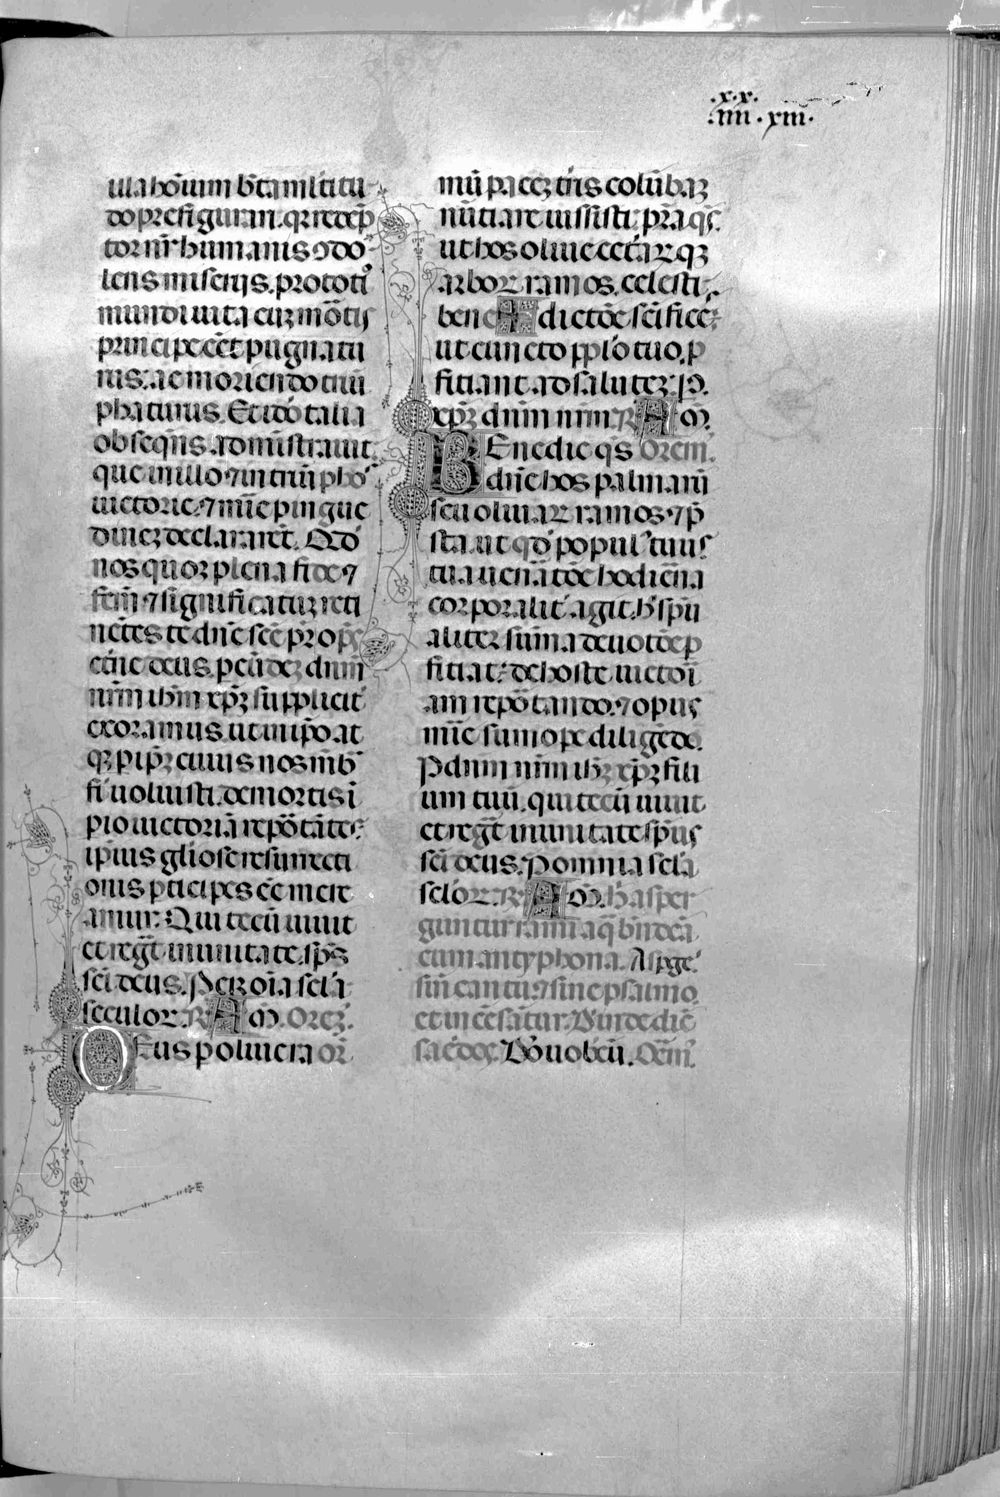 .x.x.
.iiii. xiii.
illa hoīum bt̄a mltitu
do prefigurari. qr redēp
tor nr̄ humanis ↄdo
lens miserijs. pro toti᷒
mundi uita cuz mōtis
principe eēt pugnatu
rus: ac moriendo triū
phaturus. Et iō talia
obsequēs administrauit.
que in illo ⁊ in triūphos
uictorie. ⁊ mīe pingue
dinez declararēt. Qd̄
nos quoqz plena fide ⁊
factū ⁊ significatuz reti
nētes te dn̄e scē pr̄ opс
etn̄e deus. p eūdez dnm̄
nrm̄ ihm̄ xp̄z suppliciter
exoramus. ut in ip̄o at
qz p ip̄z cuius nos mēb
fi uoluisti. de mortis ī
pio uictoriā repōtātes:
ip̄ius gliose resurrecti
onis pticipes eē mere
amur. Qui tecū uiuit
et regt̄ in unitate. sp̄s
sci deus. Per oīa scl̄a
seculor. R̄ Am̄. Orez.
Deus p oliue ra or̄.
mū pacez tr̄is colūbaz
nūtiare iussisti: pr̄a qs̄.
ut hos oliue cetarqz
arbor ramos. celesti
bene A dictōe sc̄ifice:
ut cuncto pplo tuo. p
ficiant ad salutez. P.
xp̄z dnm̄ nrm̄ R̄ Am̄.
BEnedic qs̄ Orem̄.
dn̄e hos palmarū
seu oliuarz ramos ⁊ p̄
sta. ut qd̄ popul᷒ tuus
tua uen̄atōe hodierna
corporalit᷒ agit. h᷒ spū
aliter sūma deuotōe p
ficiat: de hoste uictori
am repōtando. ⁊ opus
mīe sumope diligēdo.
P dnm̄ nrm̄ ihz xp̄z fili
um tuū. qui tecū uiuit
et regt̄ in unitate sp̄us
sci deus. P omnia scl̄a
sclo᷒r. R̄ Am̄. h᷒ asper
guntur rami aq̄ bn̄dcā
cum antyphona. Aspge
sin̄ cantu. ⁊ sine psalmo
et incēsātur. Burde dic̄
sacdos. Dō uobcū. Orm̄.